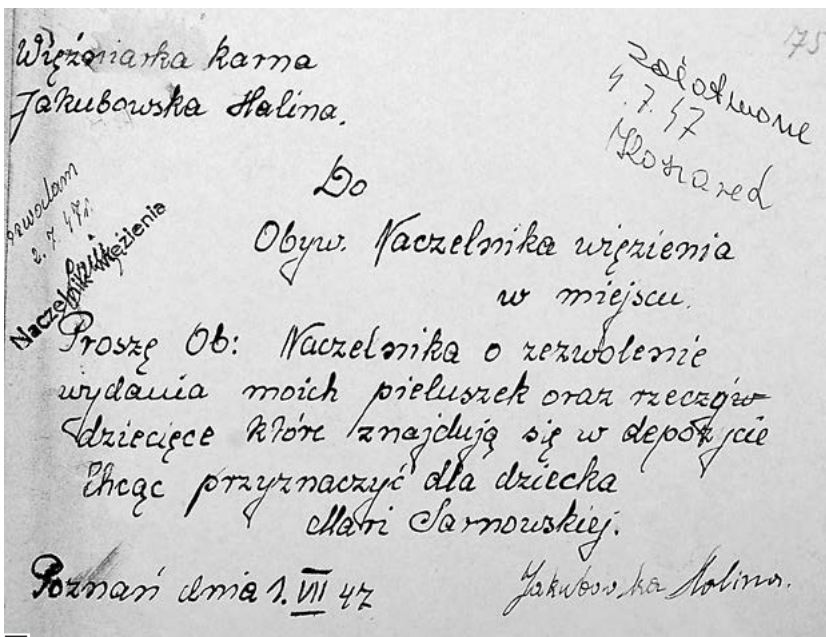 75
Więźniarka karna
Jakubowska Halina.
załatwione
4.7.47
Do
2.7.47r.
Naczelnik więzienia
Obyw. Naczelnika więzienia
w miejscu.
Proszę Ob: Naczelnika o zezwolenie
wydania moich pieluszek oraz rzeczów
dziecięce które znajdują się w depozycie
chcąc przyznaczyć dla dziecka
Mari Sarnowskiej.
Poznań dnia 1. VII 47
Jakubowska Halina.